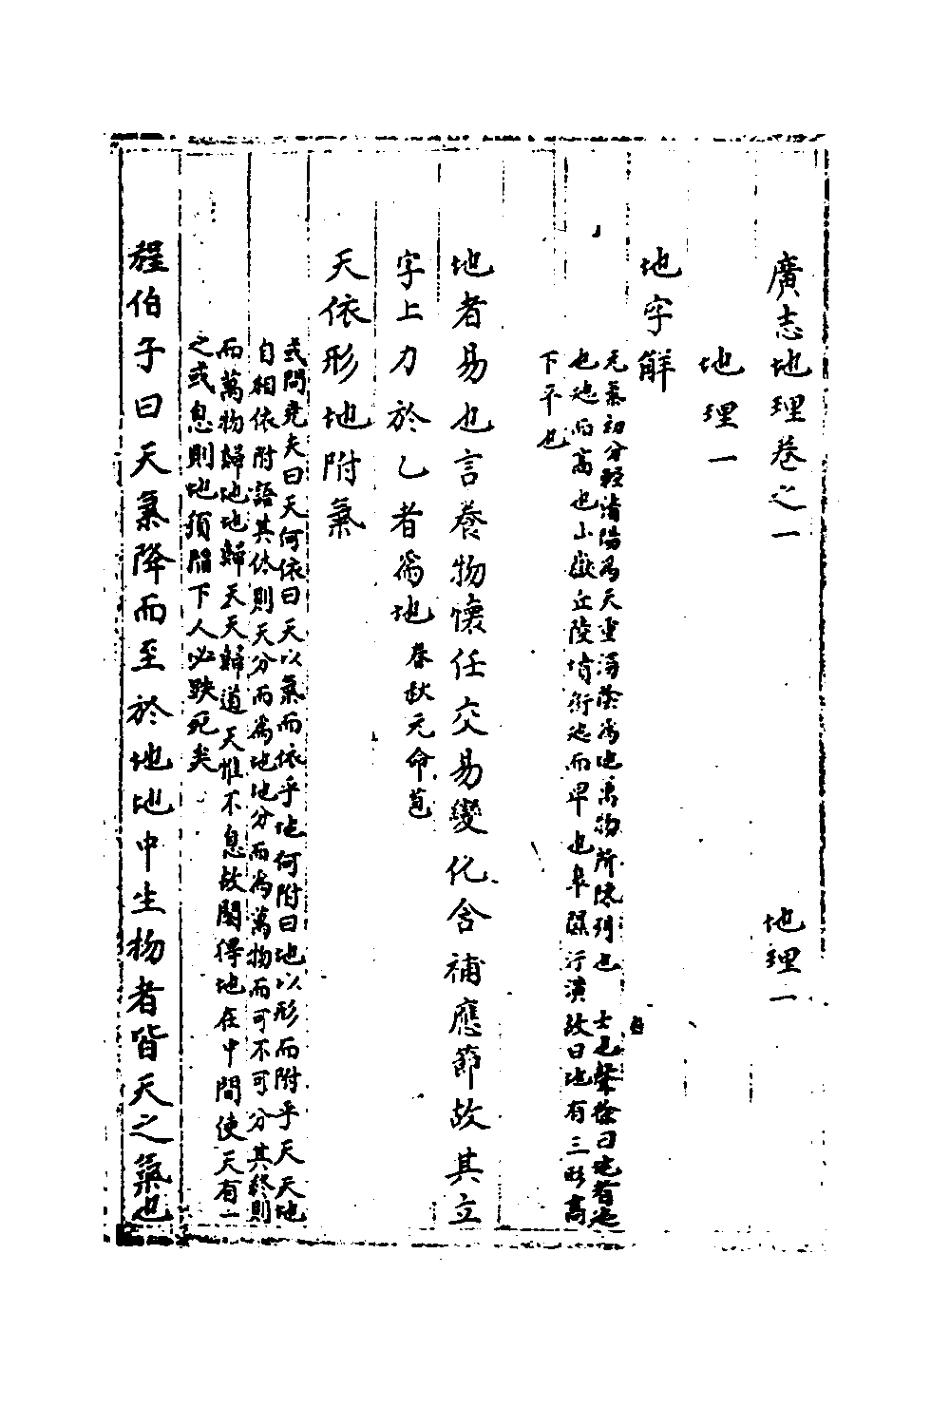 廣志地理卷之一
地理一
地理一
地字解
元氣初分輕清陽為天重濁陰為地萬物所陳列也 土也 徐曰地者也
也地而高也山嶽丘陵
而卑也 行潢故曰地有三形高
下平也
地者易也言養物懷任交易變化含補應節故其立
字上力於乙者爲地 春秋元命苞
天依形地附氣
或問堯夫曰天何依曰天以氣而依乎地何附曰地以形而附乎天天地
自相依附語其体則天分而爲地地分而爲萬物而可不可分其終則
而萬物歸地地歸天天歸道天惟不息故閣得地在中間使天有一
之或息則地須陷下人必跌死矣
程伯子曰天氣降而至於地地中生物者皆天之氣也